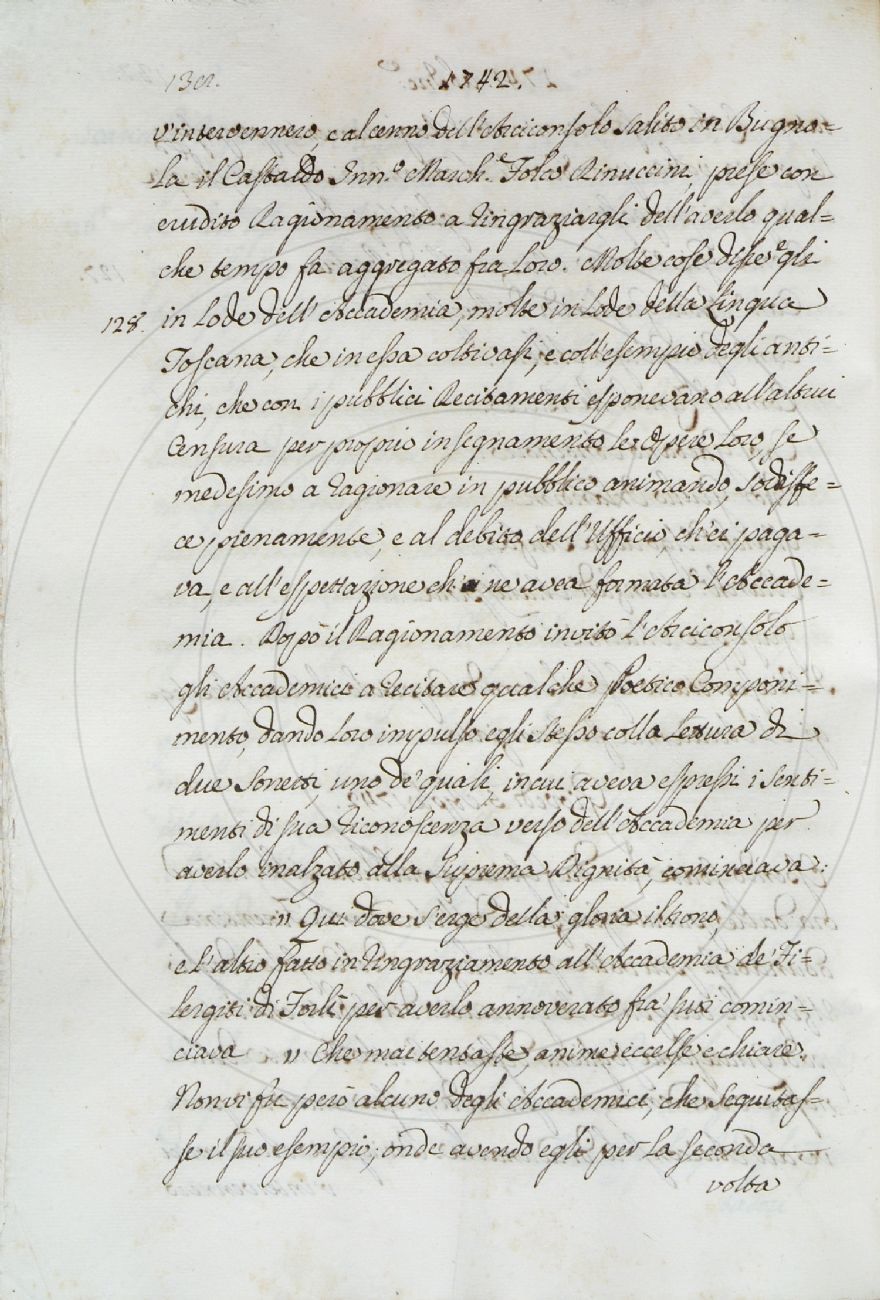 130. 1742.
v'intervennero, e al cenno dell'Arciconsolo salito in Bugno=
la il Castaldo Inn.º March.e Folco Rinuccini, prese con
erudito Ragionamento a ringraziargli dell'averlo qual=
che tempo fa aggregato fra Loro. Molte cose disse egli
128. in Lode dell'Accademia, molte in Lode della Lingua
Toscana, che in essa coltivasi, e coll'esempio degli anti=
chi, che con i pubblici Recitamenti esponevano all'altrui
Censura per proprio insegnamento le Opere Loro, se
medesimo a ragionare in pubblico animando, sodisfe=
ce pienamente, e al debito dell'Uffici, ch'ei paga=
va, e all'espettazione che ne avea formata l'Accade=
mia. Dopo il Ragionamento invitò l'Arciconsolo
gli Accademici a recitare qualche Poetico Componi=
mento, dando Loro impulso egli stesso colla Lettura di
due Sonetti, uno de' quali, in cui aveva espressi i senti=
menti di sua riconoscenza verso dell'Accademia per
averlo inalzato alla Suprema Dignità, cominciava:
" Qui dove s'erge della gloria il trono,
e l'altro fatto in ringraziamento all'Accademia de' Fi=
lergiti di Forlì per averlo annoverato fra' suoi comin=
ciava " Che mai tentaste, anime eccelse e chiare.
Non vi fu però alcuno degli Accademici, che seguitas=
se il suo esempio; onde avendo egli per la seconda
volta